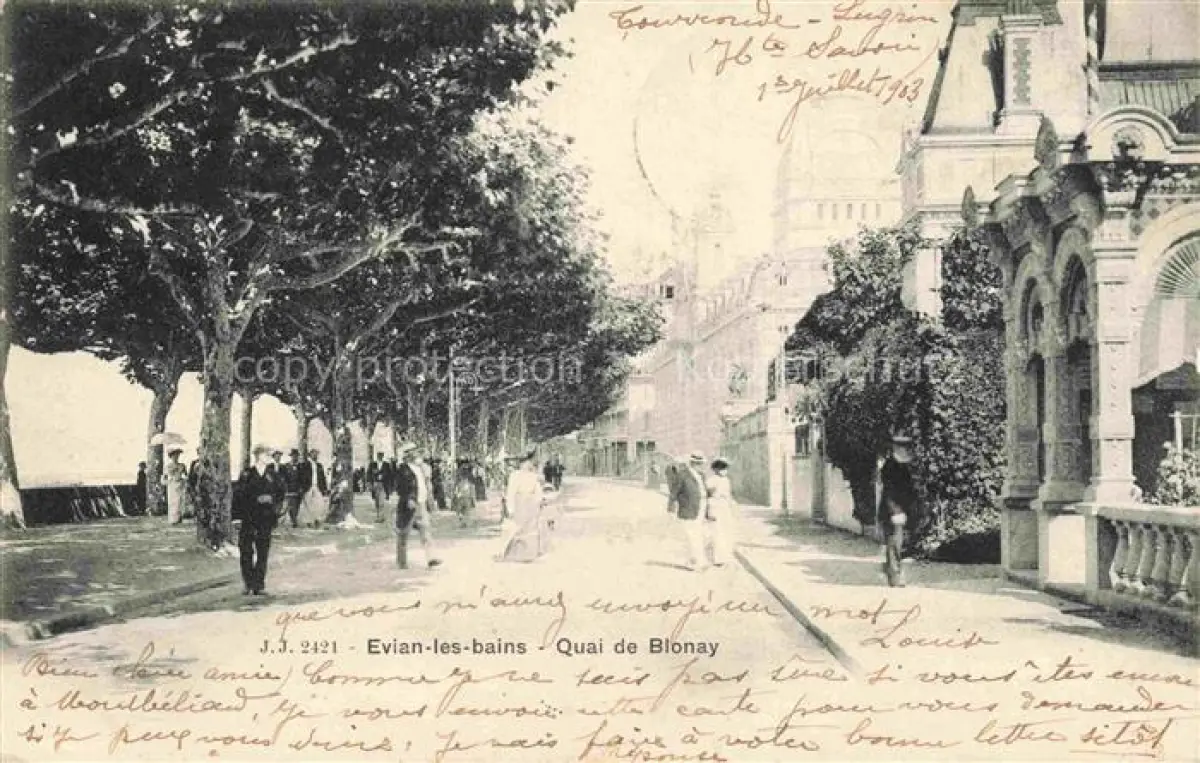 Tourronde - Lugrin
Hte Savoie
1er Juillet 1903
copy protection Kopierschutz
que vous m'aurez envoyé un mot
Louise
J.J. 2421 - Evian-les-bains - Quai de Blonay
Bien chère amie, Comme je ne suis pas sûre si vous êtes encore
à Montbéliard, je vous envoie cette carte pour vous demander
si je peux vous écrire. Je vais faire réponse à votre bonne lettre sitôt